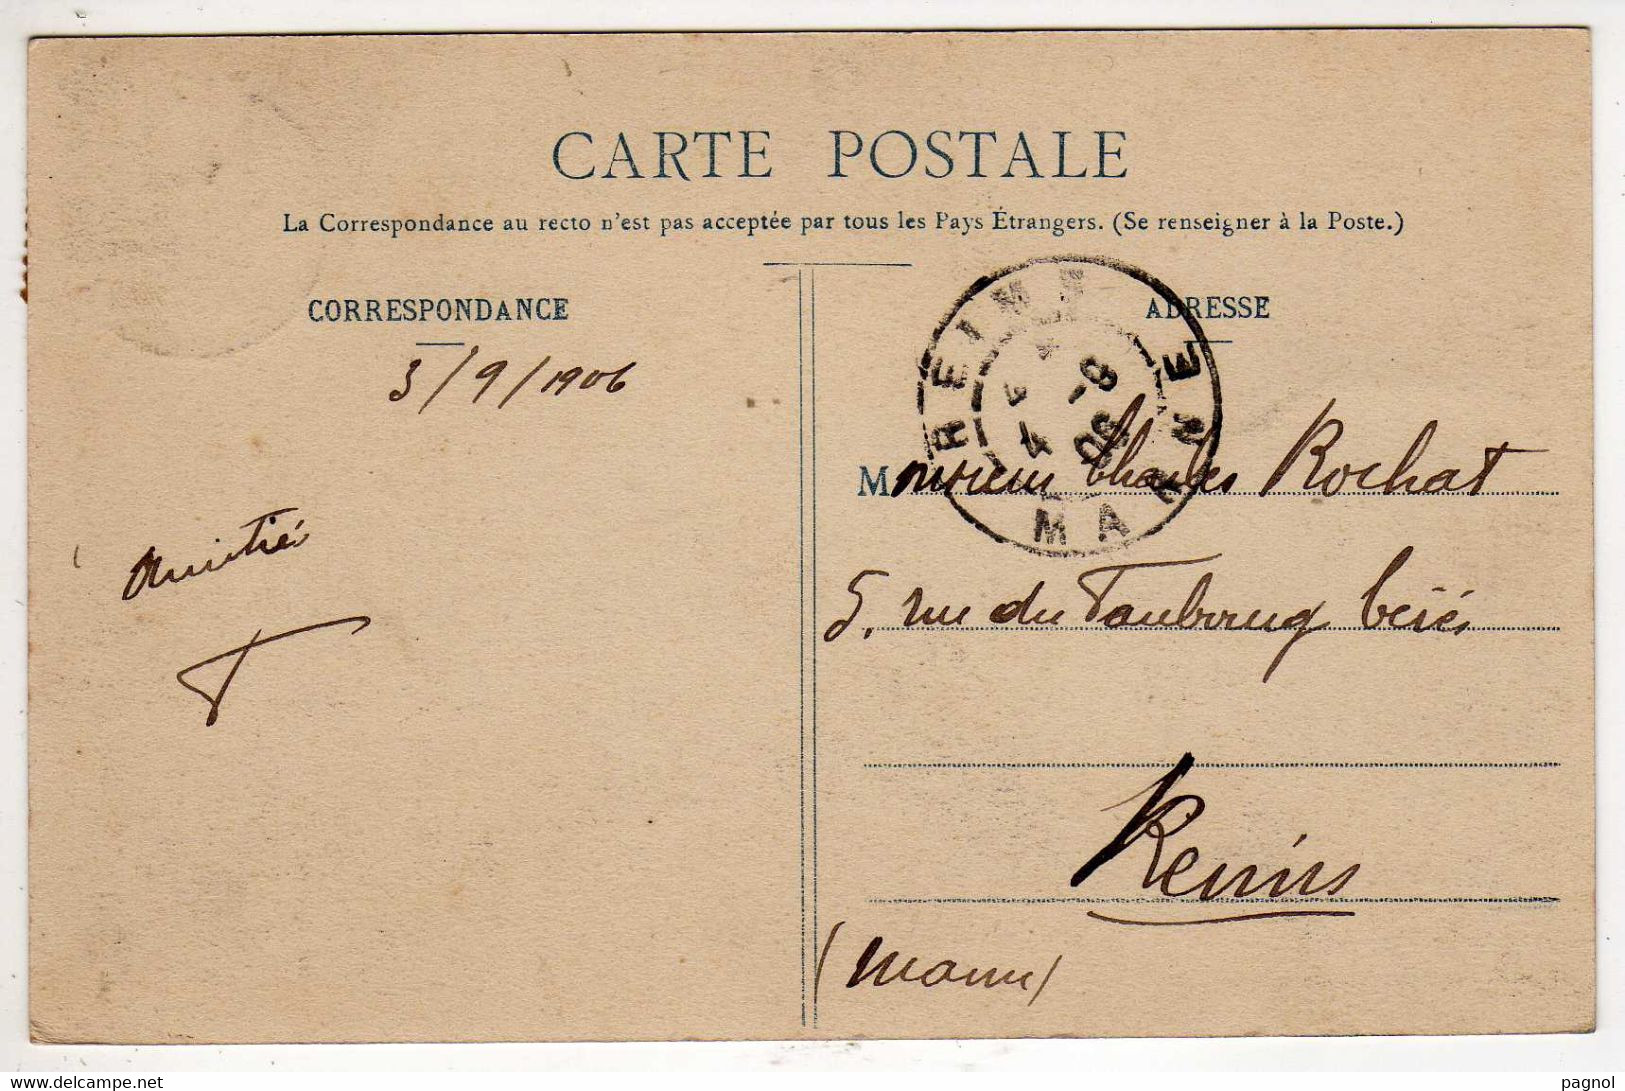 CARTE POSTALE
La Correspondance au recto n'est pas acceptée par tous les Pays Étrangers. (Se renseigner à la Poste.)
CORRESPONDANCE
ADRESSE
3/9/1906
REIMS
MARNE
06
Monsieur Charles Rochat
Amitié
5, rue du Faubourg Cérès
T
Reims
(Marne)
delcampe.net
pagnol